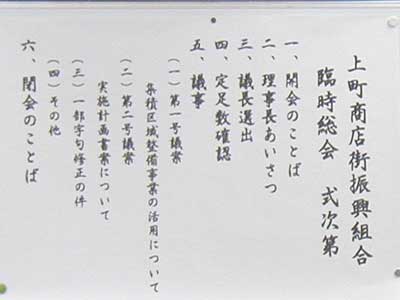 上町商店街振興組合
臨時総会 式次第
一、開会のことば
二、理事長あいさつ
三、議長選出
四、定足数確認
五、議事
(一)第一号議案
集積区域整備事業の活用について
(二)第二号議案
実施計画書案について
(三)一部字句修正の件
(四)その他
六、閉会のことば